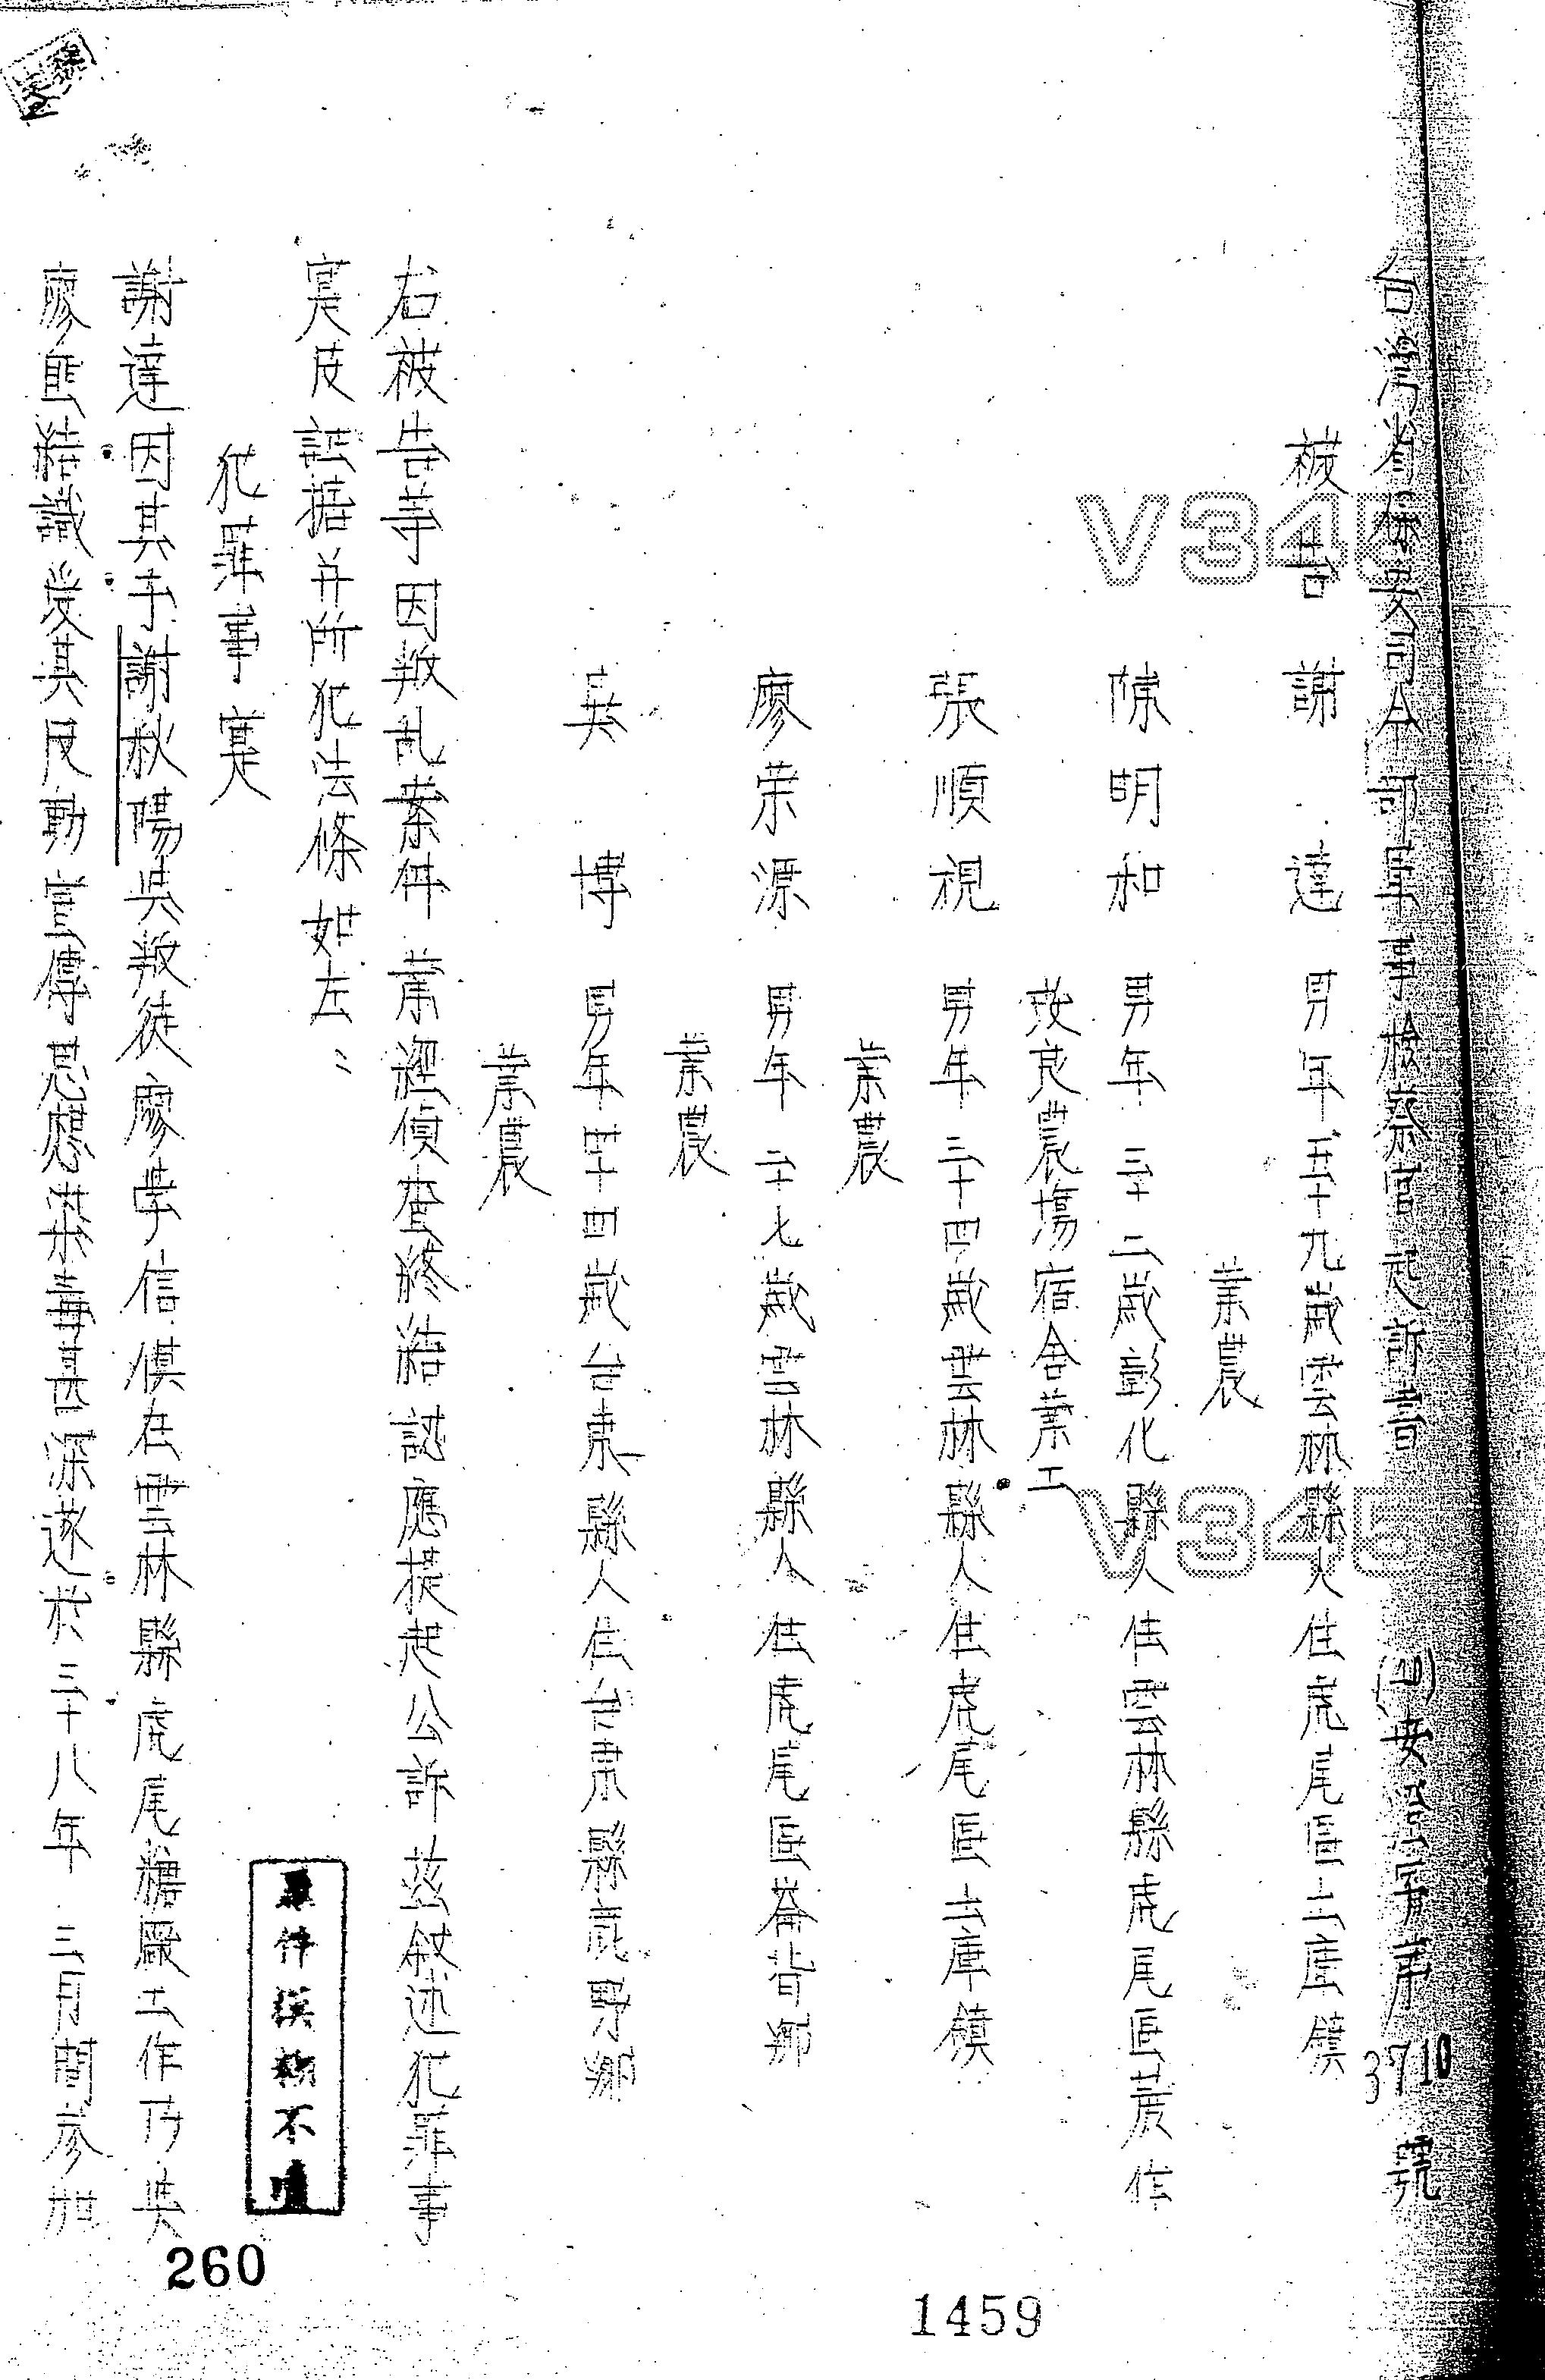 台灣省保安司令部軍事檢察官起訴書 (40)安澄字第3710號
被告 謝達 男年五十九歲雲林縣人住虎尾區土庫鎮
業農
陳明和 男年三十二歲彰化縣人住雲林縣虎尾區蔗作
改良農場宿舍業工
張順視 男年三十四歲雲林縣人住虎尾區土庫鎮
業農
廖荣源 男年二十七歲雲林縣人住虎尾區崙背鄉
業農
吳博 男年四十四歲台東縣人住台東縣鹿野鄉
業農
右被告等因叛乱案件業經偵查終結認應提起公訴茲敘述犯罪事
實及証据并所犯法條如左：
犯罪事實
謝達因其子謝秋陽與叛徒廖學信俱在雲林縣虎尾糖廠工作乃與
廖匪結識受其反動宣傳慫恿染毒甚深遂於三十八年三月間參加
原件模糊不清
260
1459
V345
V345